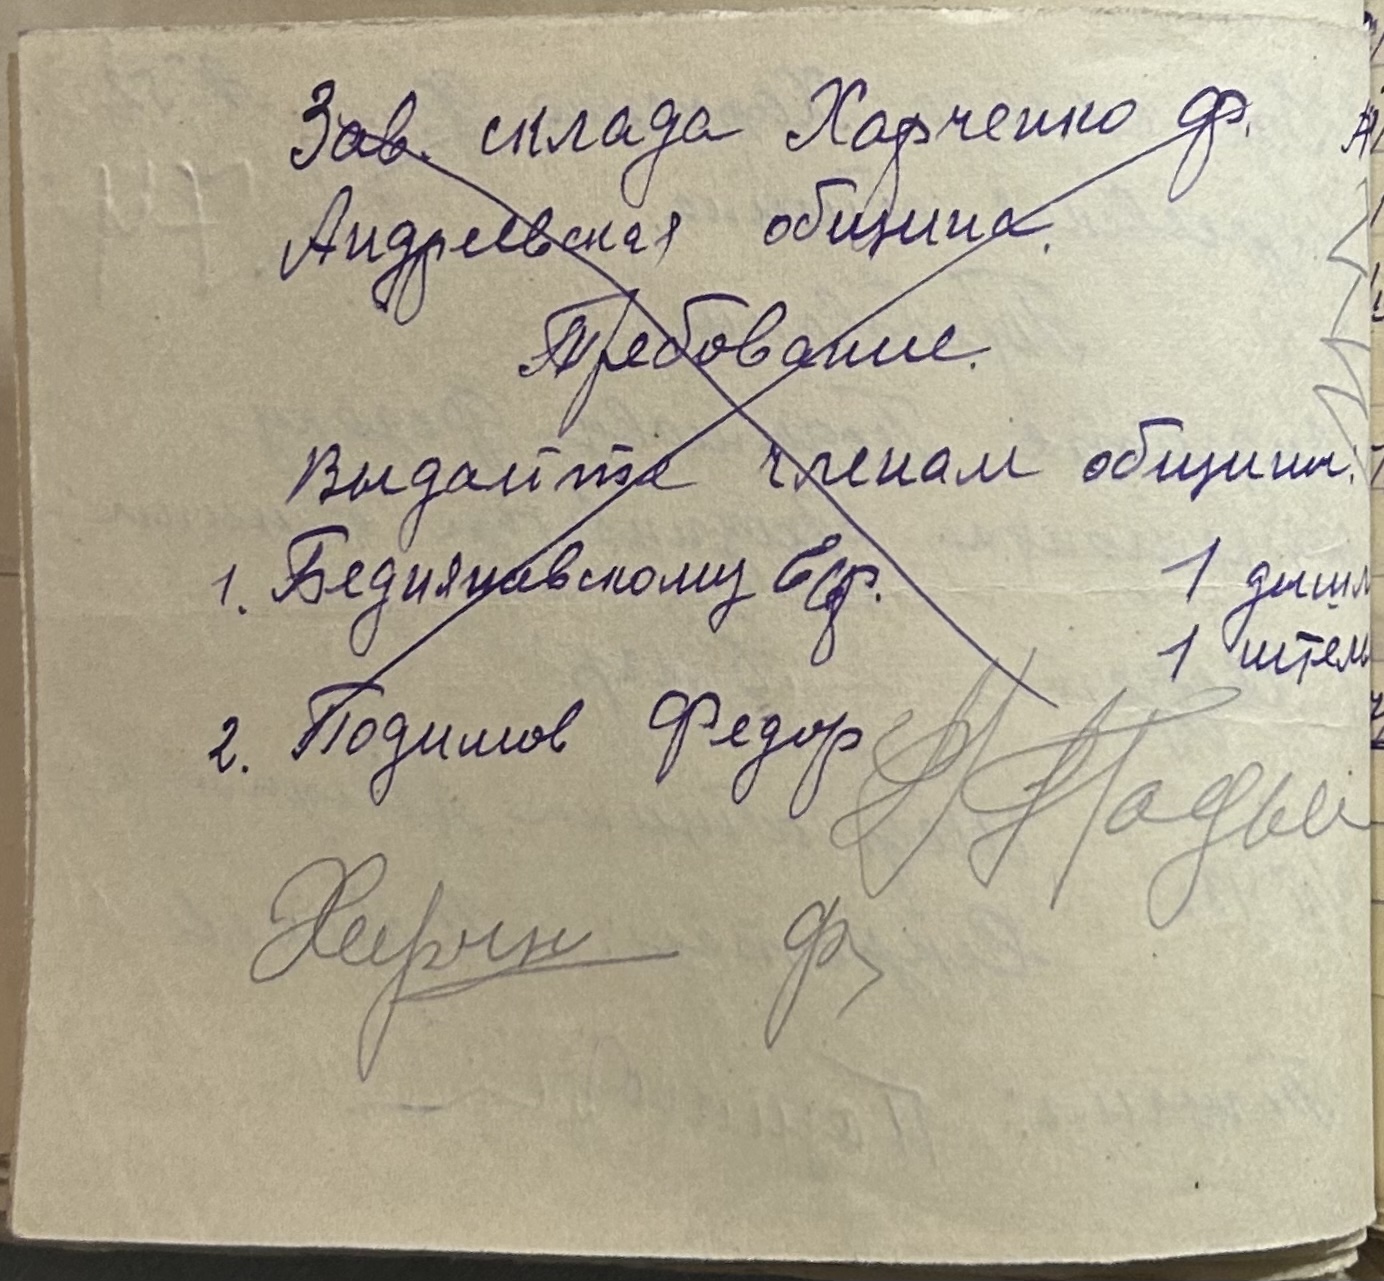 Зав. склада Харченко Ф.
Андреевская община.
Требование.
Выдайте членам общины:
1. Бедняковскому Еф. 1 дышл
1 штель
2. Подимов Федор
Ф